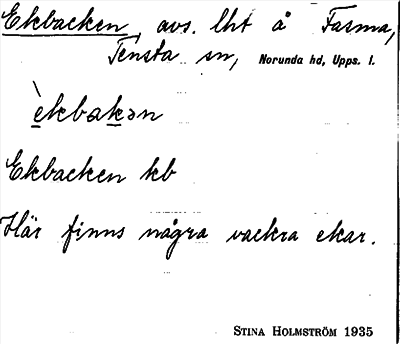 Ekbacken, avs. lht å Fasma,
Tensta sn, Norunda hd, Upps. l.
èkbakən
Ekbacken kb
Här finns några vackra ekar.
STINA HOLMSTRÖM 1935